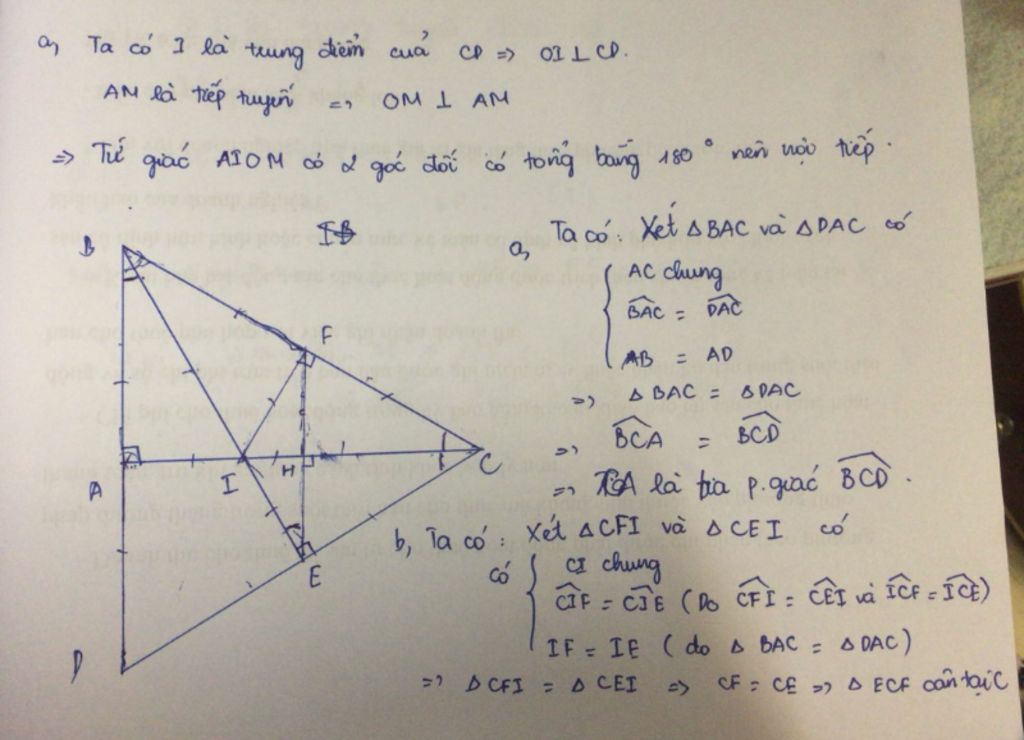 a, Ta có I là trung điểm cuả CD => OI ⊥ CD.
AM là tiếp tuyến => OM ⊥ AM
=> Tứ giác AIOM có 2 góc đối có tổng bằng 180° nên nội tiếp.
B
F
A
I
H
C
E
D
a, Ta có: Xét △BAC và △DAC có
AC chung
\widehat{BAC} = \widehat{DAC}
AB = AD
=> △BAC = △DAC
=> \widehat{BCA} = \widehat{BCD}
=> CA là tia p.giác \widehat{BCD}.
b, Ta có: Xét △CFI và △CEI có
có CI chung
\widehat{CIF} = \widehat{CIE} (Do \widehat{CFI} = \widehat{CEI} và \widehat{ICF} = \widehat{ICE})
IF = IE (do △BAC = △DAC)
=> △CFI = △CEI => CF = CE => △ECF cân tại C